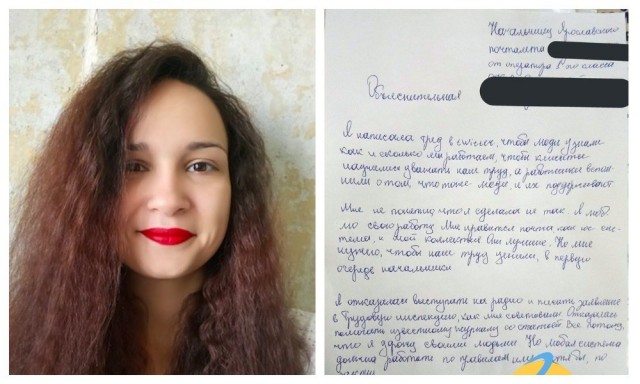 Начальнику Ярославского
почтамта
от оператора 1ого класса
Объяснительная
Я написала тред в twitter, чтобы люди узнали
как и сколько мы работаем, чтобы клиенты
научились уважать наш труд, а работники вспом-
нили о том, что тоже люди и их поддерживают.
Мне не понятно, что я сделала не так. Я люб-
лю свою работу. Мне нравится почта как си-
стема, и мой коллектив самый лучший. Но мне
нужно, чтобы наш труд ценили, в первую
очередь начальники
Я отказалась выступать на радио и писать заявление
в Трудовую инспекцию, как мне советовали. Отказалась
помогать известному журналу со статьей. Все потому,
что я дорожу своими людьми. Но любая система
должна работать по правилам или